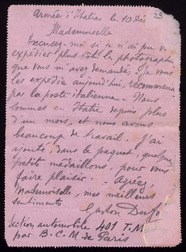 Armée d'Italie le 10 Déc
Mademoiselle
Excusez moi si je n'ai pu
expédier plus tôt la photographie
que vous m'avez demandée, Je vous
les expédie aujourd'hui, recommandé
par la poste italienne. Nous
sommes en Italie depuis plus
d'un mois, et nous avons
beaucoup de travail. J'ai
ajouté dans le paquet, quelques
petits médaillons, pour vous
faire plaisir. Agréez
Mademoiselle, mes meilleurs
sentiments
Gaston
Section automobile 401 T.M
par B.C.M de Paris